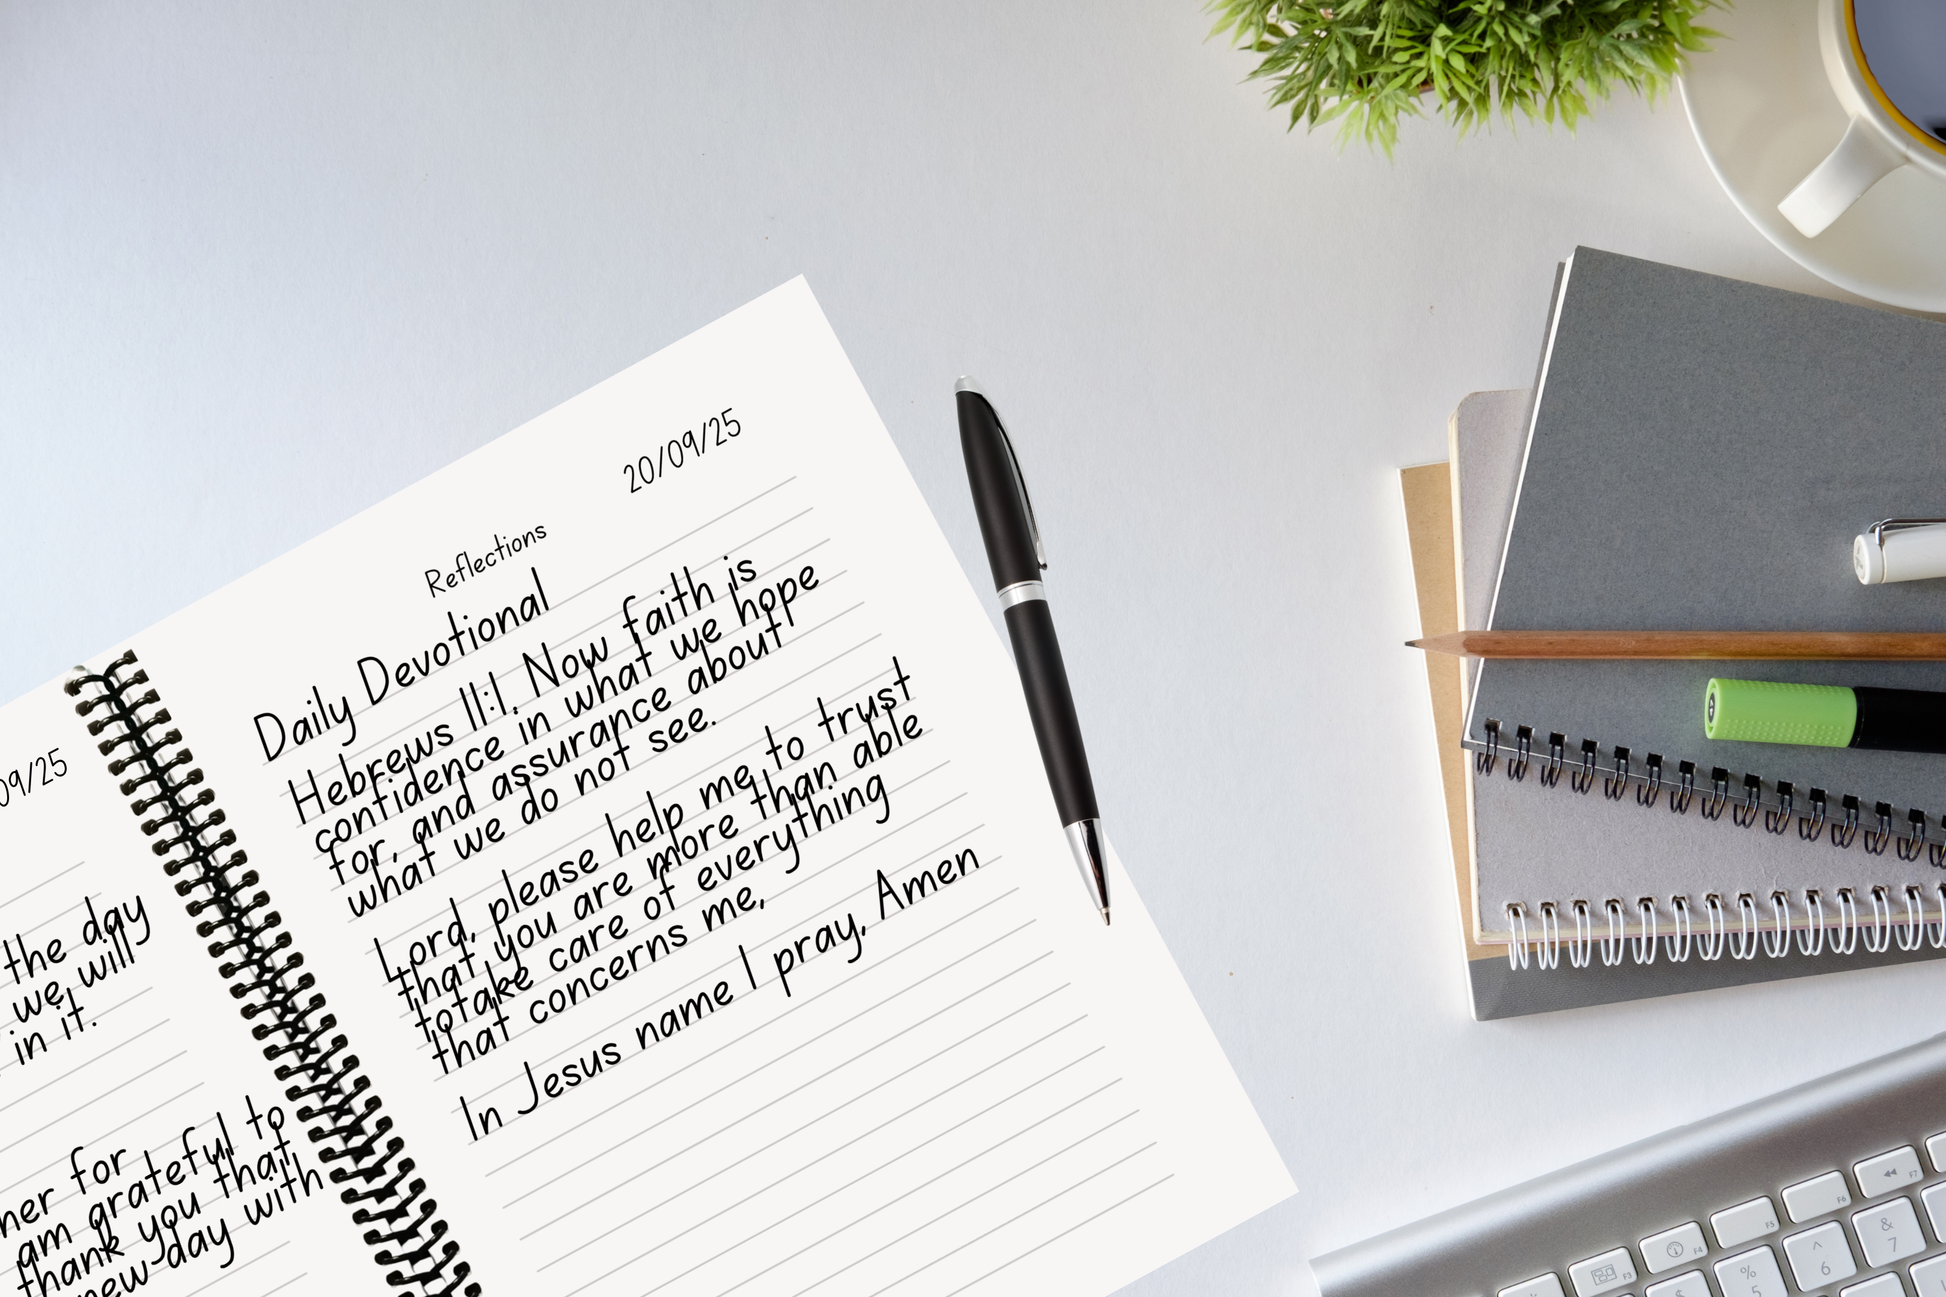 09/25
the day
we will
in it.
for
am grateful to
thank you that
new day with
20/09/25
Reflections
Daily Devotional
Hebrews 11:1. Now faith is
confidence in what we hope
for, and assurance about
what we do not see.
Lord, please help me to trust
that you are more than able
totake care of everything
that concerns me,
In Jesus name I pray, Amen
F7
F6
F5
F4
F3
&
7
^
6
%
5
$